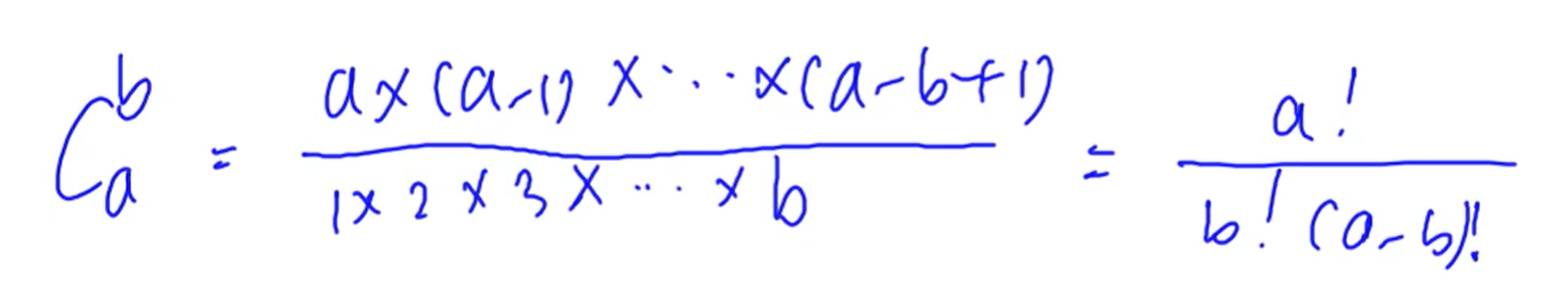 C_a^b = \frac{a×(a-1)×⋯×(a-b+1)}{1×2×3×⋯×b} = \frac{a!}{b!(a-b)!}